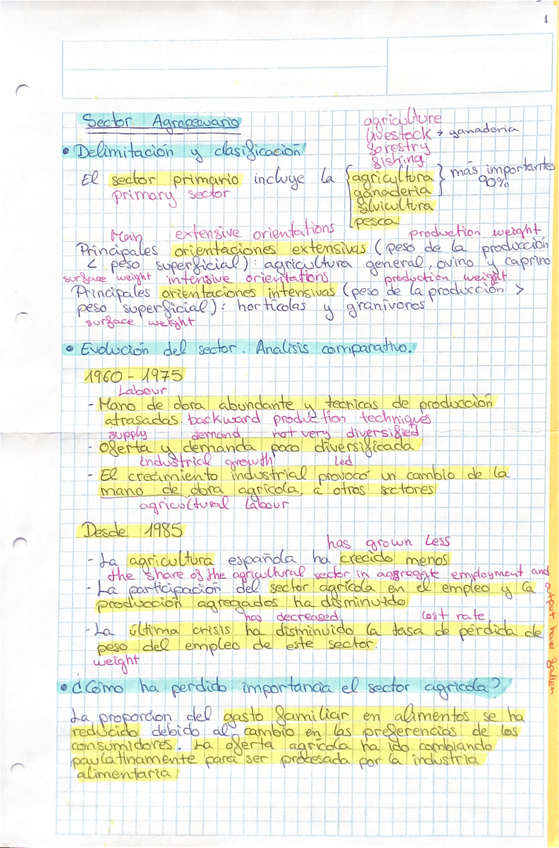 1
Sector Agropecuario
agriculture
livestock → ganaderia
forestry
fishing
• Delimitación y clasificación
El sector primario incluye la { agricultura } más importantes
primary sector
ganaderia 90%
silvicultura
pesca
Main extensive orientations production weight
Principales orientaciones extensivas (peso de la producción
< peso superficial): agricultura general, ovino y caprino
surface weight intensive orientations production weight
Principales orientaciones intensivas (peso de la producción >
peso superficial): hortícolas y granívoros
surface weight
• Evolución del sector. Analisis comparativo.
1960 - 1975
Labour
- Mano de obra abundante y tecnicas de producción
atrasadas backward production techniques
supply demand not very diversified
- Oferta y demanda poco diversificada
industrial growth led
- El crecimiento industrial provocó un cambio de la
mano de obra agricola, a otros sectores
agricultural labour
Desde 1985
has grown less
- La agricultura española ha crecido menos
the share of the agricultural sector in aggregate employment and
output have fallen
- La participación del sector agrícola en el empleo y la
producción agregados ha disminuido
has decreased lost rate
- La última crisis ha disminuido la tasa de pérdida de
peso del empleo de este sector.
weight
• ¿Cómo ha perdido importancia el sector agricola?
La proporcion del gasto familiar en alimentos se ha
reducido debido al cambio en las preferencias de los
consumidores. La oferta agrícola ha ido cambiando
paulatinamente para ser procesada por la industria
alimentaria